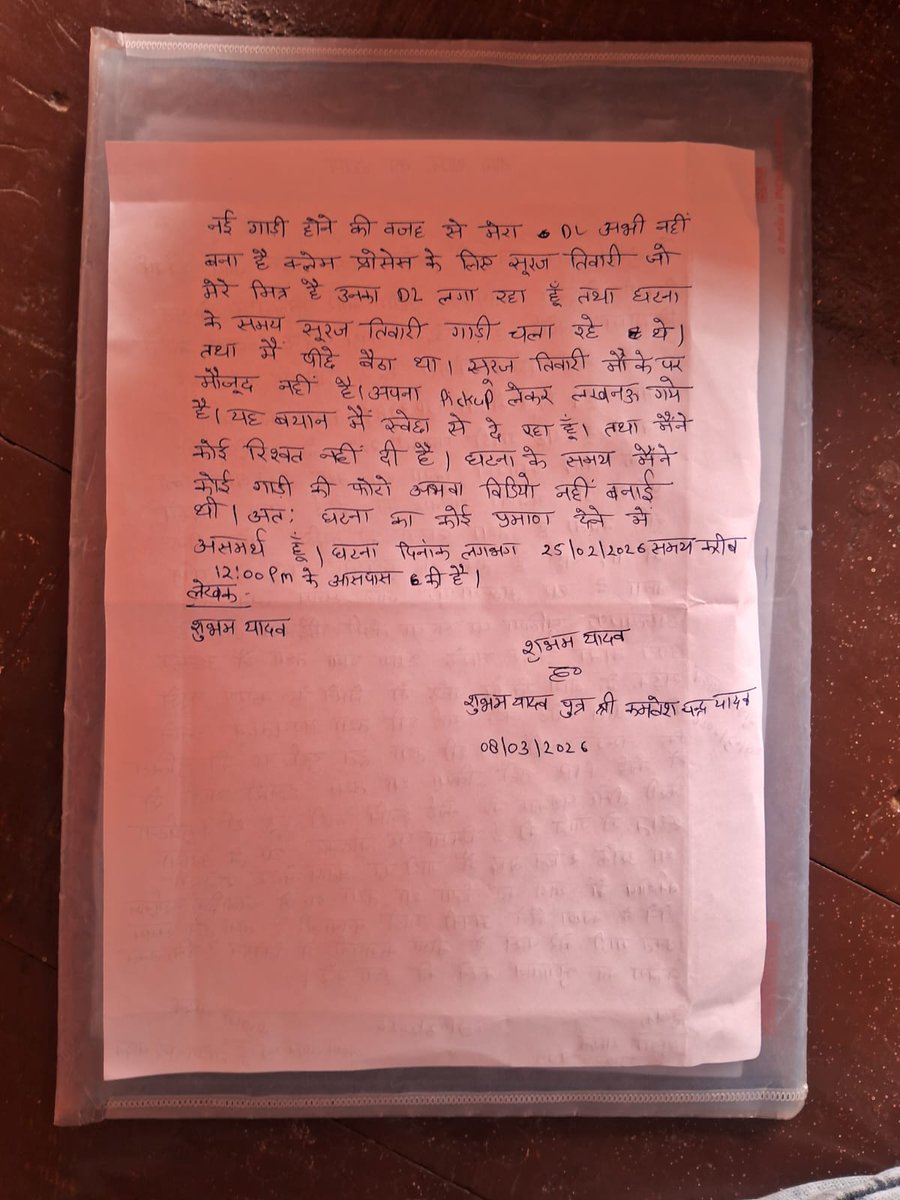 नई गाडी होने की वजह से मेरा DL अभी नहीं
बना है क्लेम प्रोसेस के लिए सूरज तिवारी जो
मेरे मित्र है उनका DL लगा रहा हूँ तथा घटना
के समय सूरज तिवारी गाडी चला रहे थे।
तथा मैं पीछे बैठा था। सूरज तिवारी मौके पर
मौजूद नहीं है। अपना Pickup लेकर लखनऊ गये
है। यह बयान मैं स्वेछा से दे रहा हूँ। तथा मैंने
कोई रिश्वत नहीं दी है। घटना के समय मैंने
कोई गाडी की फोटो अथवा विडियो नहीं बनाई
थी। अतः घटना का कोई प्रमाण देने में
असमर्थ हूँ। घटना दिनांक लगभग 25/02/2026 समय करीब
12:00 Pm के आसपास की है।
लेखक -
शुभम यादव
शुभम यादव
ह०
शुभम यादव पुत्र श्री कमलेश चन्द्र यादव
08/03/2026